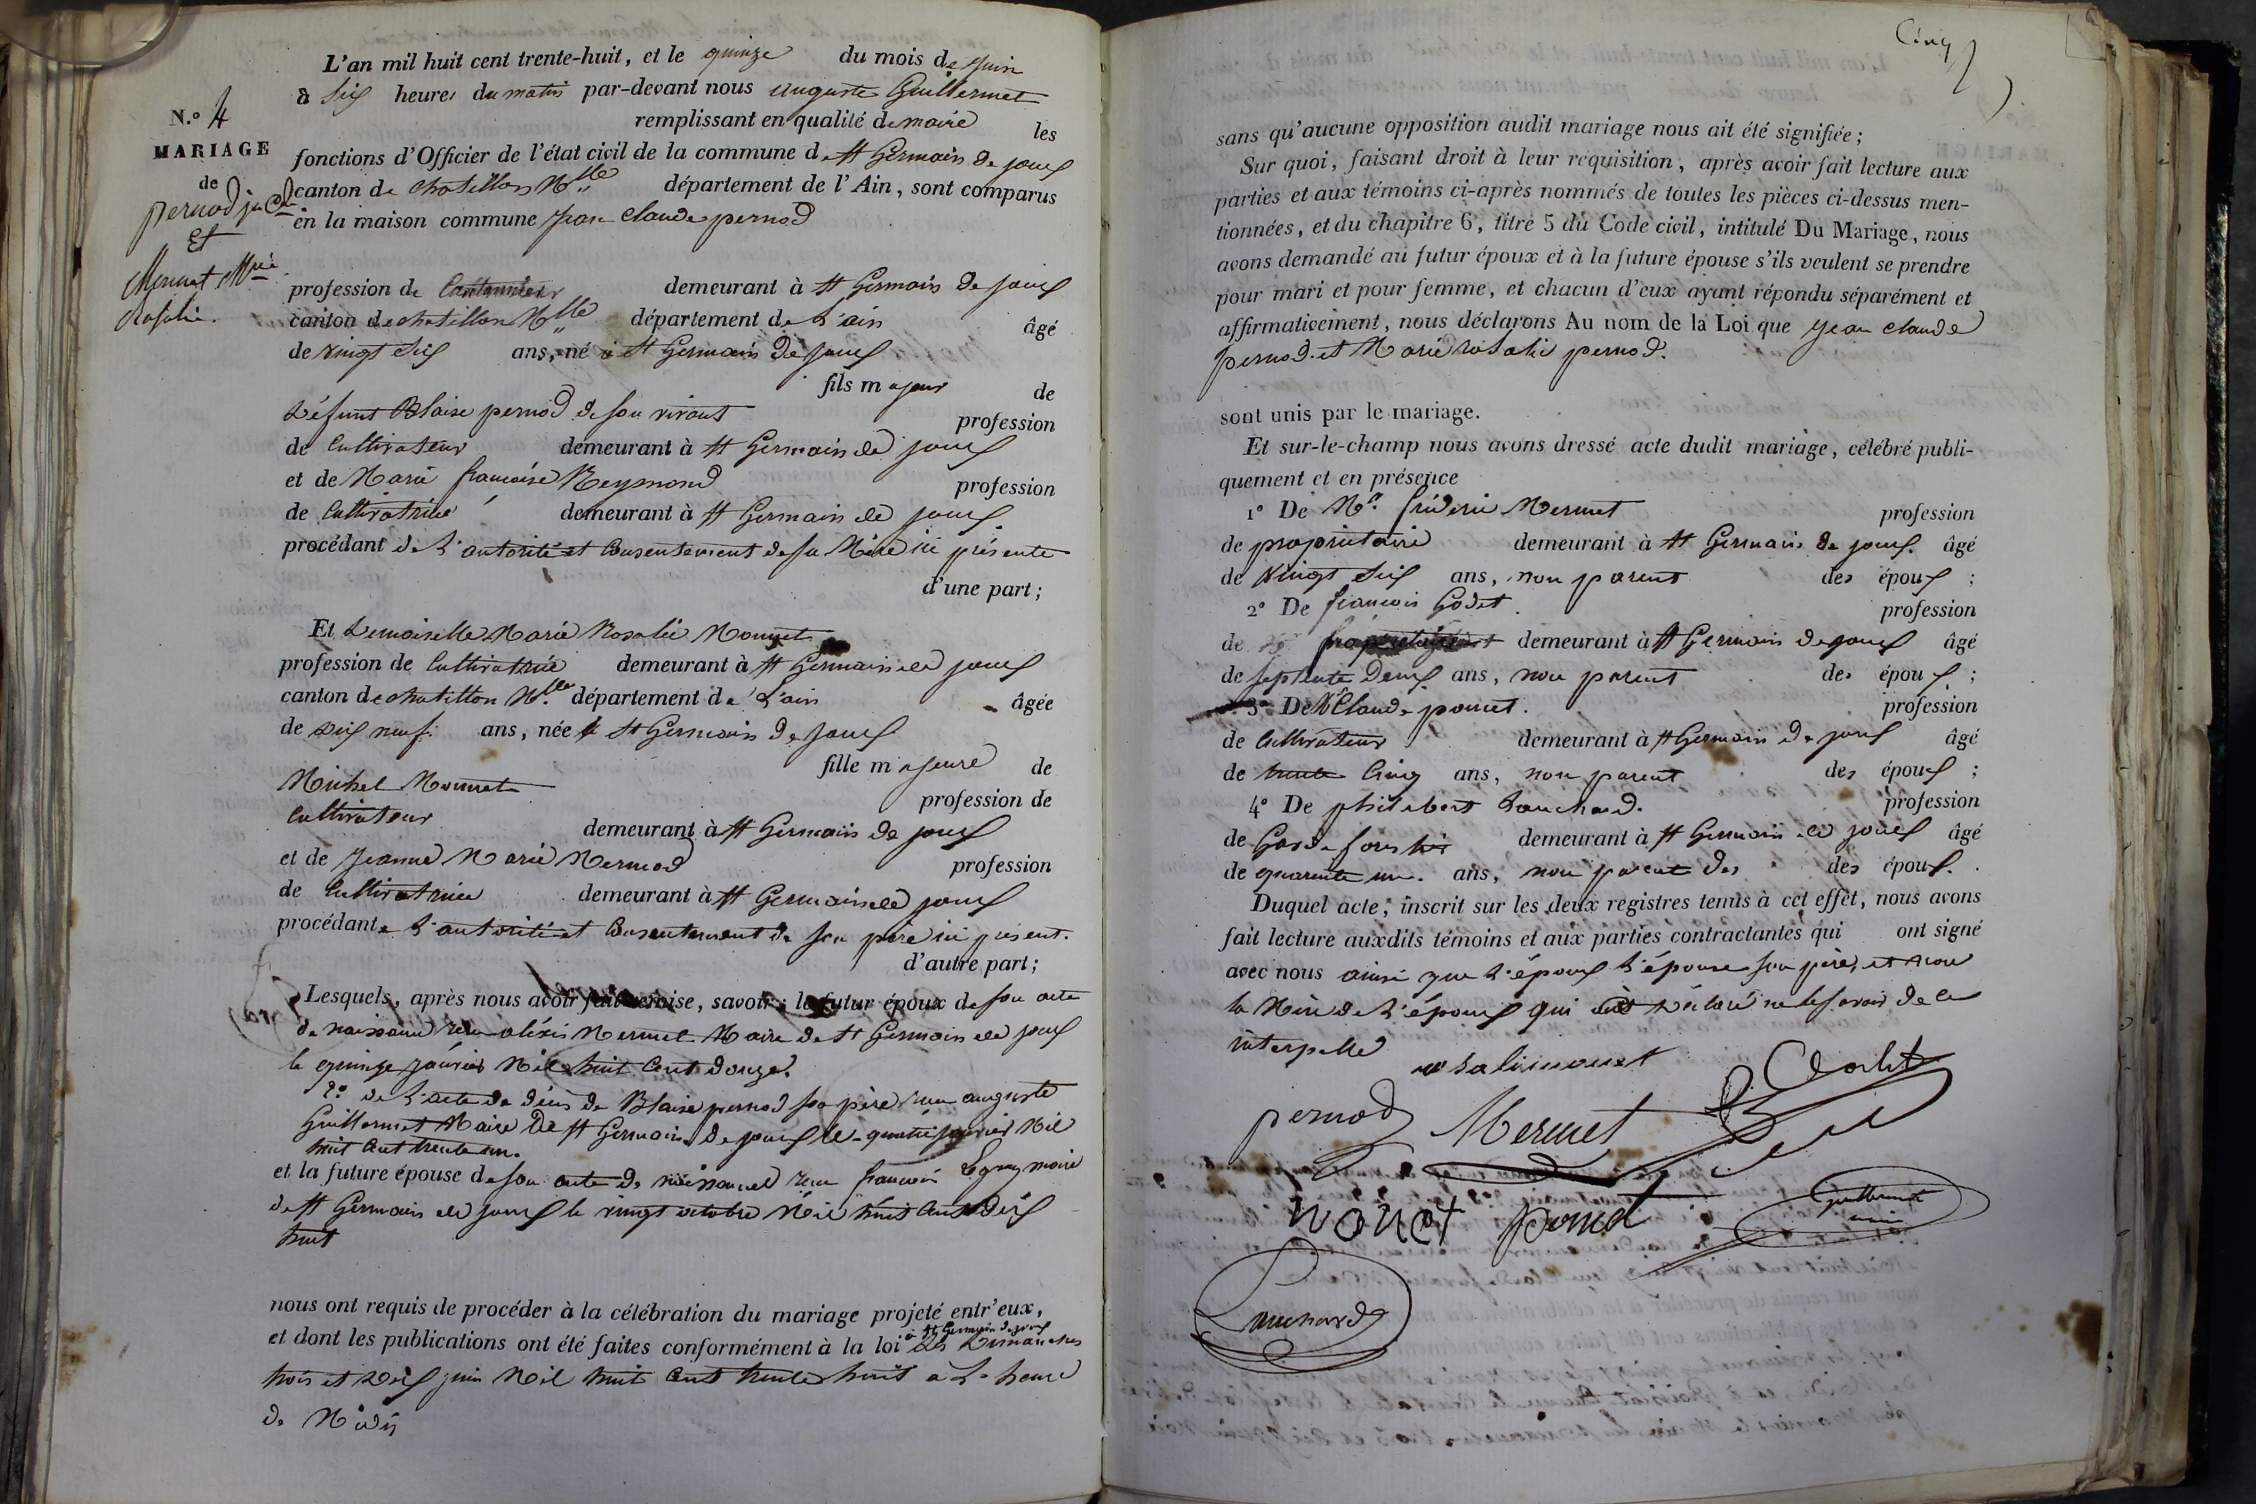 L'an mil huit cent trente-huit, et le quinze du mois de juin
à six heures du matin par-devant nous auguste Guillermet
remplissant en qualité de maire les
fonctions d'Officier de l'état civil de la commune de St Germain de joux
canton de chatillon Mlle département de l'Ain, sont comparus
en la maison commune jean claude pernod
N.º 4
MARIAGE
de
pernod jn Cde
Et
Monnet Mrie
Rosalie.
profession de Cantonnier demeurant à St Germain de joux
canton de chatillon Mlle département de L'ain âgé
de vingt six ans, né à St Germain de joux
fils majeur de
Défunt Blaise pernod de son vivant profession
de Cultivateur demeurant à St Germain de joux
et de Marie françoise Reymond profession
de Cultivatrice demeurant à St Germain de joux
procédant de L'autorité et Consentement de sa Mère ici présente
d'une part;
Et Demoiselle Marie Rosalie Monnet
profession de Cultivatrice demeurant à St Germain de joux
canton de chatillon Mlle département de L'ain âgée
de dix neuf ans, née à St Germain de joux
fille majeure de
Michel Monnet profession de
Cultivateur demeurant à St Germain de joux
et de jeanne Marie Mermod profession
de Cultivatrice demeurant à St Germain de joux
procédante L'autorité et Consentement de son père ici présent.
d'autre part;
Lesquels, après nous avoir fait remise, savoir: le futur époux de son acte
de naissance reçu aléxis Mermet Maire de St Germain de joux
le quinze janvier Mil huit Cent douze.
2º de L'acte de décès de Blaise pernod son père reçu auguste
Guillermet Maire De St Germain de joux le quatre janvier Mil
huit Cent trente un.
et la future épouse de son acte de naissance reçu françois maire
de St Germain de joux le vingt octobre Mil huit Cent Dix
huit
nous ont requis de procéder à la célébration du mariage projeté entr'eux,
et dont les publications ont été faites conformément à la loi à St Germain de joux Les Dimanches
trois et Dix juin Mil huit Cent trente huit a L'heure
de Midi
Cinq
sans qu'aucune opposition audit mariage nous ait été signifiée;
Sur quoi, faisant droit à leur requisition, après avoir fait lecture aux
parties et aux témoins ci-après nommés de toutes les pièces ci-dessus men-
tionnées, et du chapitre 6, titre 5 du Code civil, intitulé Du Mariage, nous
avons demandé au futur époux et à la future épouse s'ils veulent se prendre
pour mari et pour femme, et chacun d'eux ayant répondu séparément et
affirmativement, nous déclarons Au nom de la Loi que jean claude
pernod et Marie rosalie pernod.
sont unis par le mariage.
Et sur-le-champ nous avons dressé acte dudit mariage, célébré publi-
quement et en présence
1º De Mr. fréderic Mermet profession
de propriétaire demeurant à St Germain de joux. âgé
de vingt six ans, non parent des époux;
2º De françois Godet. profession
de propriétaire demeurant à St Germain de joux âgé
de septente Deux ans, non parent des époux;
3º De Claude poncet. profession
de Cultivateur demeurant à St Germain de joux âgé
de trente Cinq ans, non parent des époux;
4º De philibert Lanchard. profession
de Garde forestier demeurant à St Germain de joux âgé
de quarente un. ans, non parent des des époux.
Duquel acte, inscrit sur les deux registres tenus à cet effet, nous avons
fait lecture auxdits témoins et aux parties contractantes qui ont signé
avec nous ainsi que L'époux L'épouse son père, et non
la Mère de L'époux qui a déclaré ne le savoir de ce
interpellé
rosalimonet
pernod Mermet
monet poncet Guillermet
maire
Lanchard